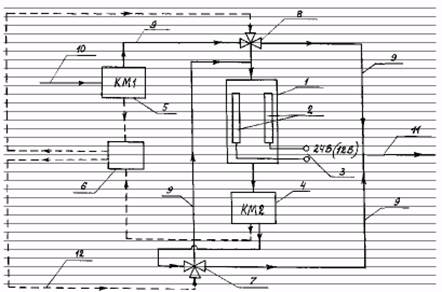 9
8
10
9
КМ1
1
5
2
24В(12В)
11
3
6
4
9
КМ2
9
12
7